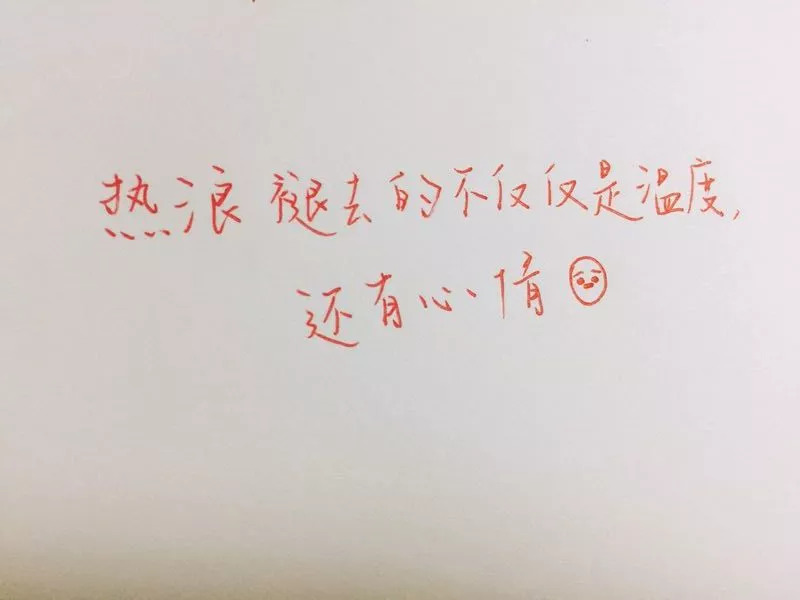 热浪褪去的不仅仅是温度,
还有心情